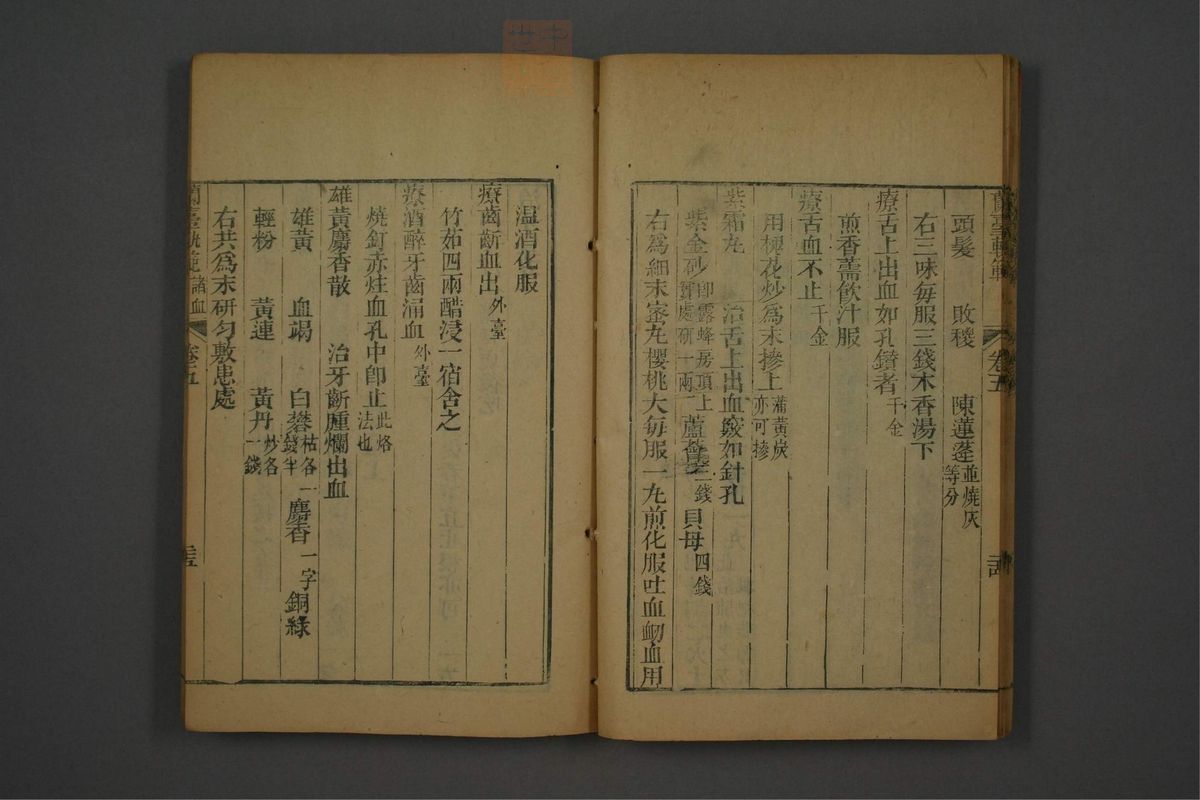 蘭臺軌範 卷五
頭髮 敗稷 陳蓮蓬並燒灰等分
右三味每服三錢木香湯下
療舌上出血如孔鑽者千金
煎香薷飲汁服
療舌血不止千金
用槐花炒爲末摻上蒲黃炭亦可摻
紫霜丸 治舌上出血竅如針孔
紫金砂即露蜂房頂上實處研一兩 蘆薈三錢 貝母四錢
右爲細末蜜丸櫻桃大每服一丸煎化服吐血衂血用
温酒化服
療齒齗血出外臺
竹茹四兩醋浸一宿含之
療酒醉牙齒涌血外臺
燒釘赤炷血孔中卽止此烙法也
雄黃麝香散 治牙齗腫爛出血
雄黃 血竭 白礬枯各一錢半 麝香一字 銅綠
輕粉 黃連 黃丹炒各一錢
右共爲末研匀敷患處
蘭臺軌範 諸血 卷五